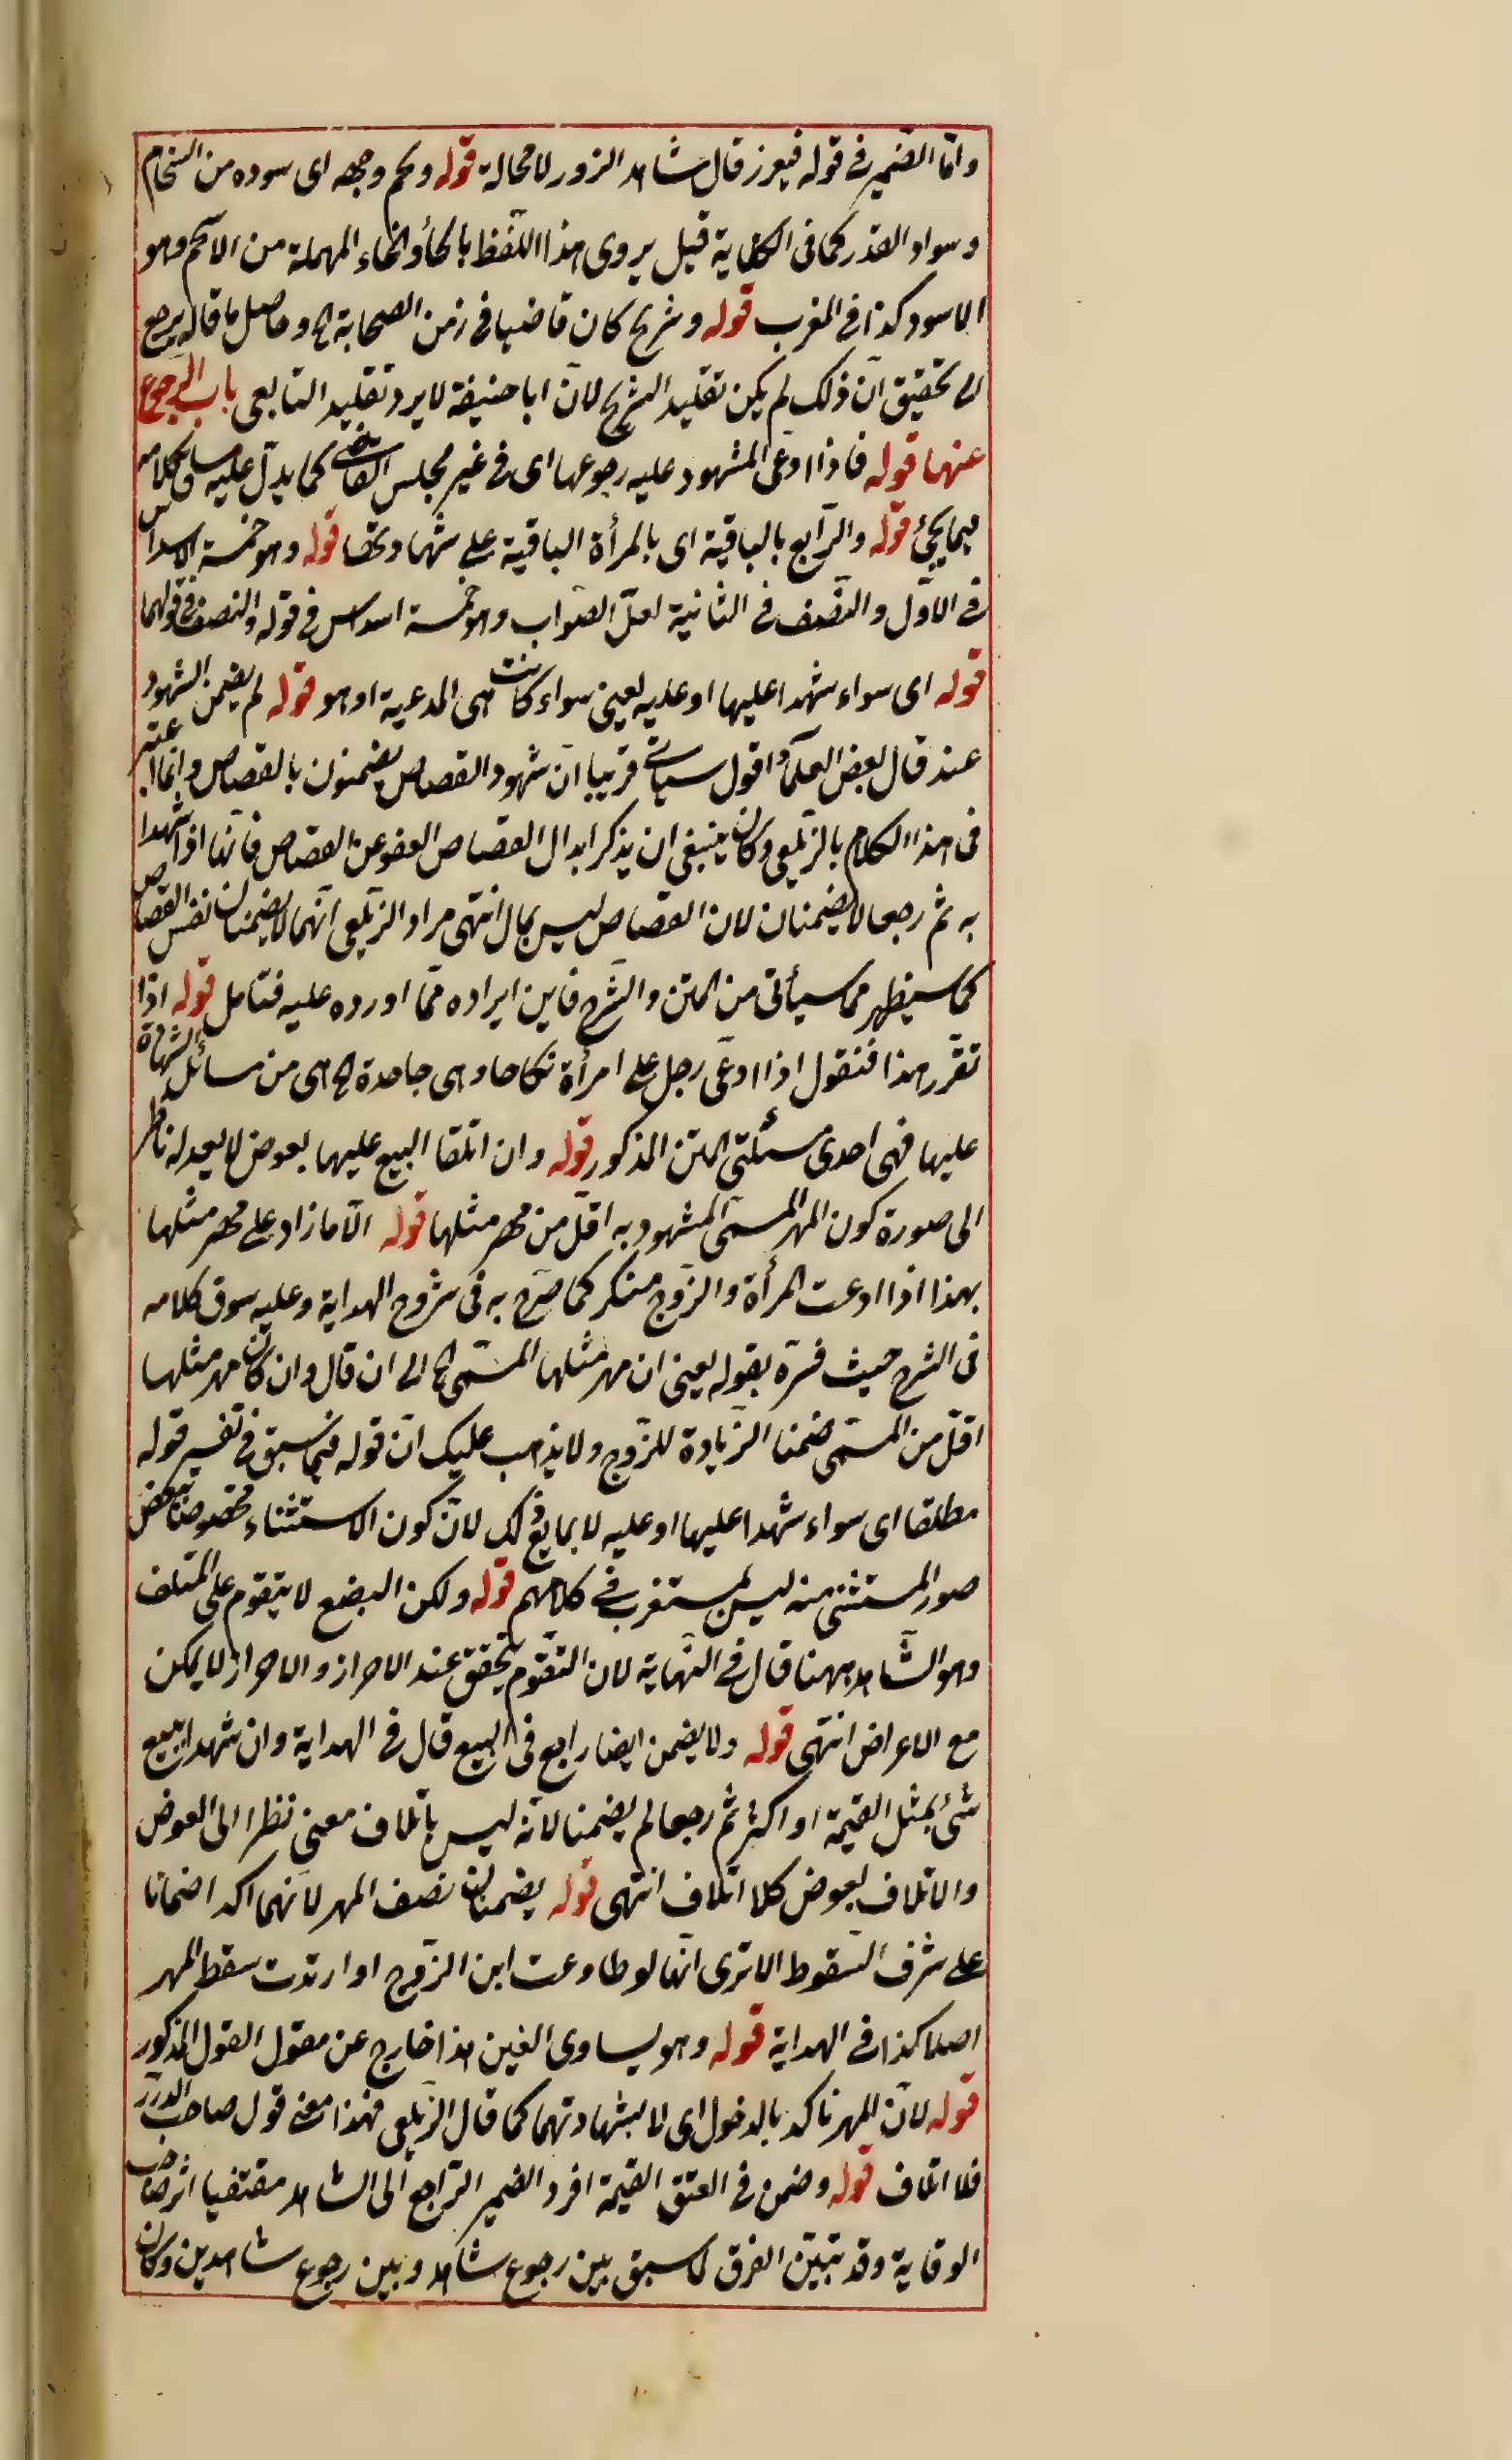 وامّا الضمير في قوله فيعزر قال شاهد الزور لا محالة قوله وسخم وجهه اى سوده من السخام
وسواد القدر كما في الكفاية قيل يروى هذا اللفظ بالحاء والخاء المهملة من الاسحم وهو
الاسود كذا في المغرب قوله وشريح كان قاضيا في زمن الصحابة الخ وحاصل ما قاله يرجع
الى تحقيق انّ ذلك لم يكن تقليد الشريح لانّ ابا حنيفة لا يرد تقليد التابعى باب الرجوع
عنها قوله فاذا ادعى المشهود عليه رجوعها اى في غير مجلس القاضى كما يدلّ عليه مساق كلامه
فيما يجئ قوله والرابع بالباقية اى بالمرأة الباقية على شهادتها قوله وهو خمسة الاسداس
في الاوّل والنّصف في الثانية لعلّ الصّواب وهو خمسة اسداس في قوله والنصف في قولهما
قوله اى سواء شهدا عليها او عليه يعنى سواء كانت هى المدعية او هو قوله لم يضمن الشهود
عند قال بعض العلماء واقول سياتى قريبا انّ شهود القصاص يضمنون بالقصاص وانما
في هذا الكلام بالزيلعى وكان ينبغى ان يذكر ابدال القصاص العفو عن القصاص فانهما اذا شهدا
به ثم رجعا لا يضمنان لان القصاص ليس بمال انتهى مراد الزيلعى انّهما لا يضمنان نفس القصاص
كما سيظهر مما سيأتى من المتن والشرح فاين ايراده ممّا اورده عليه فتامل قوله اذا
تقرّر هذا فنقول اذا ادعى رجل على امرأة نكاحا وهى جاحدة الخ هى من مسائل الشهادة
عليها فهى احدى مسئلتى المتن المذكور قوله وان اتلفا البيع عليهما بعوض لا يعدله ناظر
الى صورة كون المهر المسمى المشهود به اقلّ من مهر مثلها قوله الّا ما زاد على مهر مثلها
بهذا اذا ادعت المرأة والزّوج منكر كما صرّح به في شروح الهداية وعليه سوق كلامه
في الشرح حيث فسّره بقوله يعنى ان مهر مثلها المسمّى الخ الى ان قال وان كان مهر مثلها
اقلّ من المسمّى ضمنا الزّيادة للزّوج ولا يذهب عليك انّ قوله فيما سبق في تفسير قوله
مطلقا اى سواء شهدا عليها او عليه لا ينافى ذلك لانّ كون الاستثناء مخصوصا ببعض
صور المستثنى منه ليس بمستغرب في كلامهم قوله ولكن البضع لا يتقوم على المتلف
وهو الشّاهد ههنا قال في النّهاية لان التقوّم يتحقق عند الاحراز والاحراز لا يمكن
مع الاعراض انتهى قوله ولا يضمن ايضا راجع في البيع قال في الهداية وان شهدا ببيع
شئ بمثل القيمة او اكثر ثم رجعا لم يضمنا لانّه ليس باتلاف معنى نظرا الى العوض
والاتلاف بعوض كلا اتلاف انتهى قوله يضمنان نصف المهر لانّهما اكدا ضمانا
على شرف السّقوط الا ترى انّها لو طاوعت ابن الزّوج او ارتدت سقط المهر
اصلا كذا في الهداية قوله وهو يساوى الفين هذا خارج عن مقول القول المذكور
قوله لانّ المهر تاكد بالدخول اى لا بشهادتهما كما قال الزيلعى فهذا معنى قول صاحب الدرر
فلا اتلاف قوله وضمن في العتق القيمة افرد الضمير الرّاجع الى الشاهد مقتفيا اثر صاحب
الوقاية وقد تبيّن الفرق كما سبق بين رجوع شاهد وبين رجوع شاهدين وكان